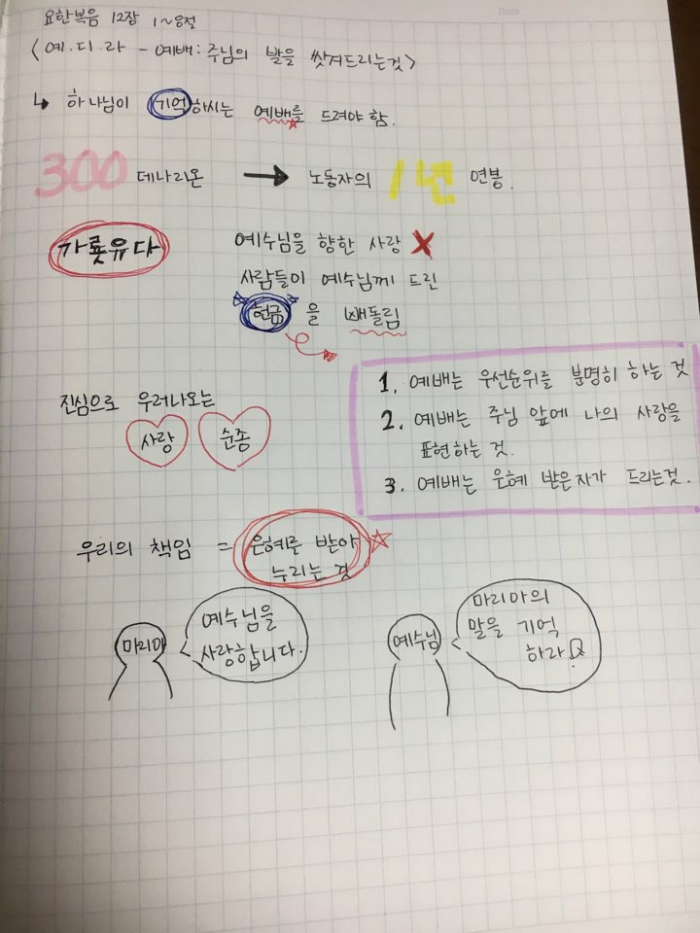 요한복음 12장 1~8절
<예.디.라 - 예배: 주님의 발을 씻겨드리는것>
↳ 하나님이 기억하시는 예배를 드려야 함.
300 데나리온 → 노동자의 1년 연봉.
가룟유다
예수님을 향한 사랑 X
사람들이 예수님께 드린
헌금을 빼돌림
1. 예배는 우선순위를 분명히 하는 것
2. 예배는 주님 앞에 나의 사랑을
표현하는 것.
3. 예배는 은혜 받은자가 드리는것.
진심으로 우러나오는
사랑 순종
우리의 책임 = 은혜를 받아
누리는 것
마리아
예수님을
사랑합니다.
예수님
마리아의
말을 기억
하라